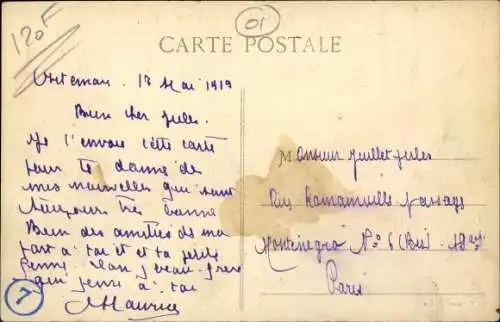 120F
01
CARTE POSTALE
Artemare. 18 Mai 1919
Bien cher jules.
Je t'envois cette carte
pour te donne des
mes nouvelles qui sont
toujours très bonne
Bien des amitiés de ma
part à toi et ta petite
femme. ton beau frere
qui pense à toi
Maurice
7
Monsieur juillet jules
Rue Romainville passage
Montenegro No 6 (Bis) 19
Paris